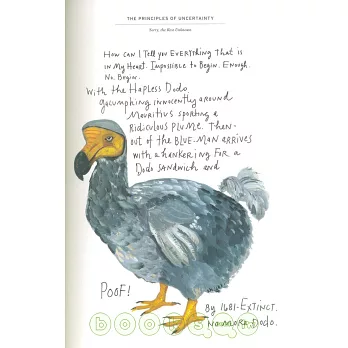 THE PRINCIPLES OF UNCERTAINTY
How can I Tell you EVERYTHING That is
in My Heart. Impossible to Begin. Enough.
No. Begin.
With the Hapless Dodo
galumphing innocently around
Mauritius sporting a
Ridiculous Plume. Then-
out of the BLUE-MAN ARRIVES
with a hankering FOR a
Dodo SANDWICH and
POOF!
By 1681-EXTINCT.
No more Dodo.
books